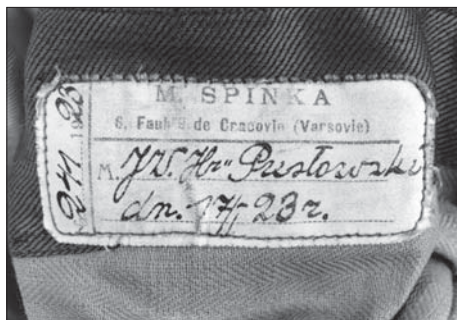 M. SPINKA
6, Faub g de Cracovie (Varsovie)
M. JW. Hr. Pusłowski
dn. 17/ 23 r.
241 1923